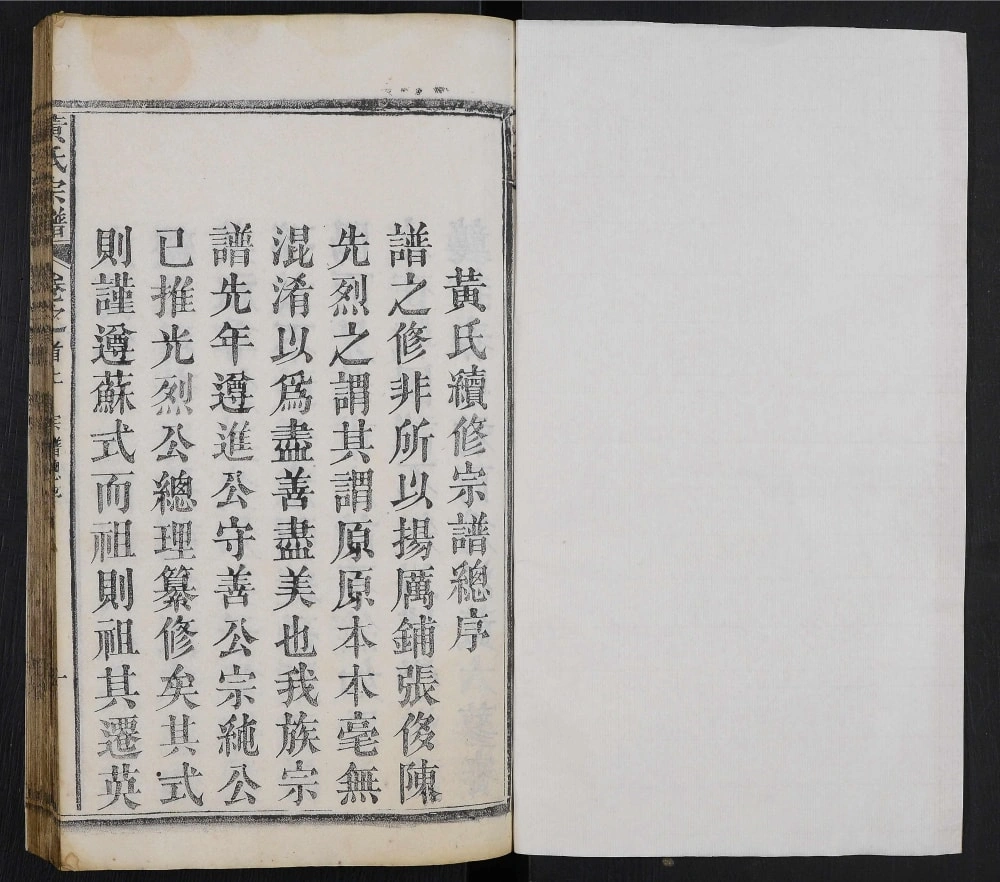 黃氏續修宗譜總序
譜之修非所以揚厲鋪張侈陳
先烈之謂其謂原原本本毫無
混淆以爲盡善盡美也我族宗
譜先年遵進公守善公宗純公
已推光烈公總理纂修矣其式
則謹遵蘇式而祖則祖其遷英
黃氏宗譜
卷之首上
宗譜總序
一